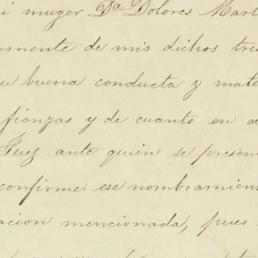 i muger Dª Dolores Mart
amente de mis dichos tres
u buena conducta y mate
fianzas y de cuanto en a
Juez ante quién se presen
confirme ese nombramien
acion mencionada, pues